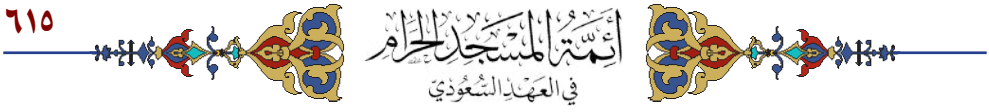 ٦١٥
أئمة المسجد الحرام
في العهد السعودي